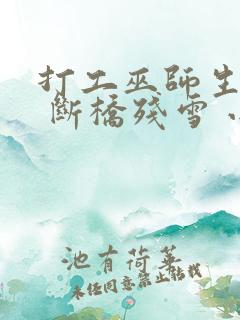 打工巫師生
斷橋殘雪
池有荷華
未經同意禁止轉載